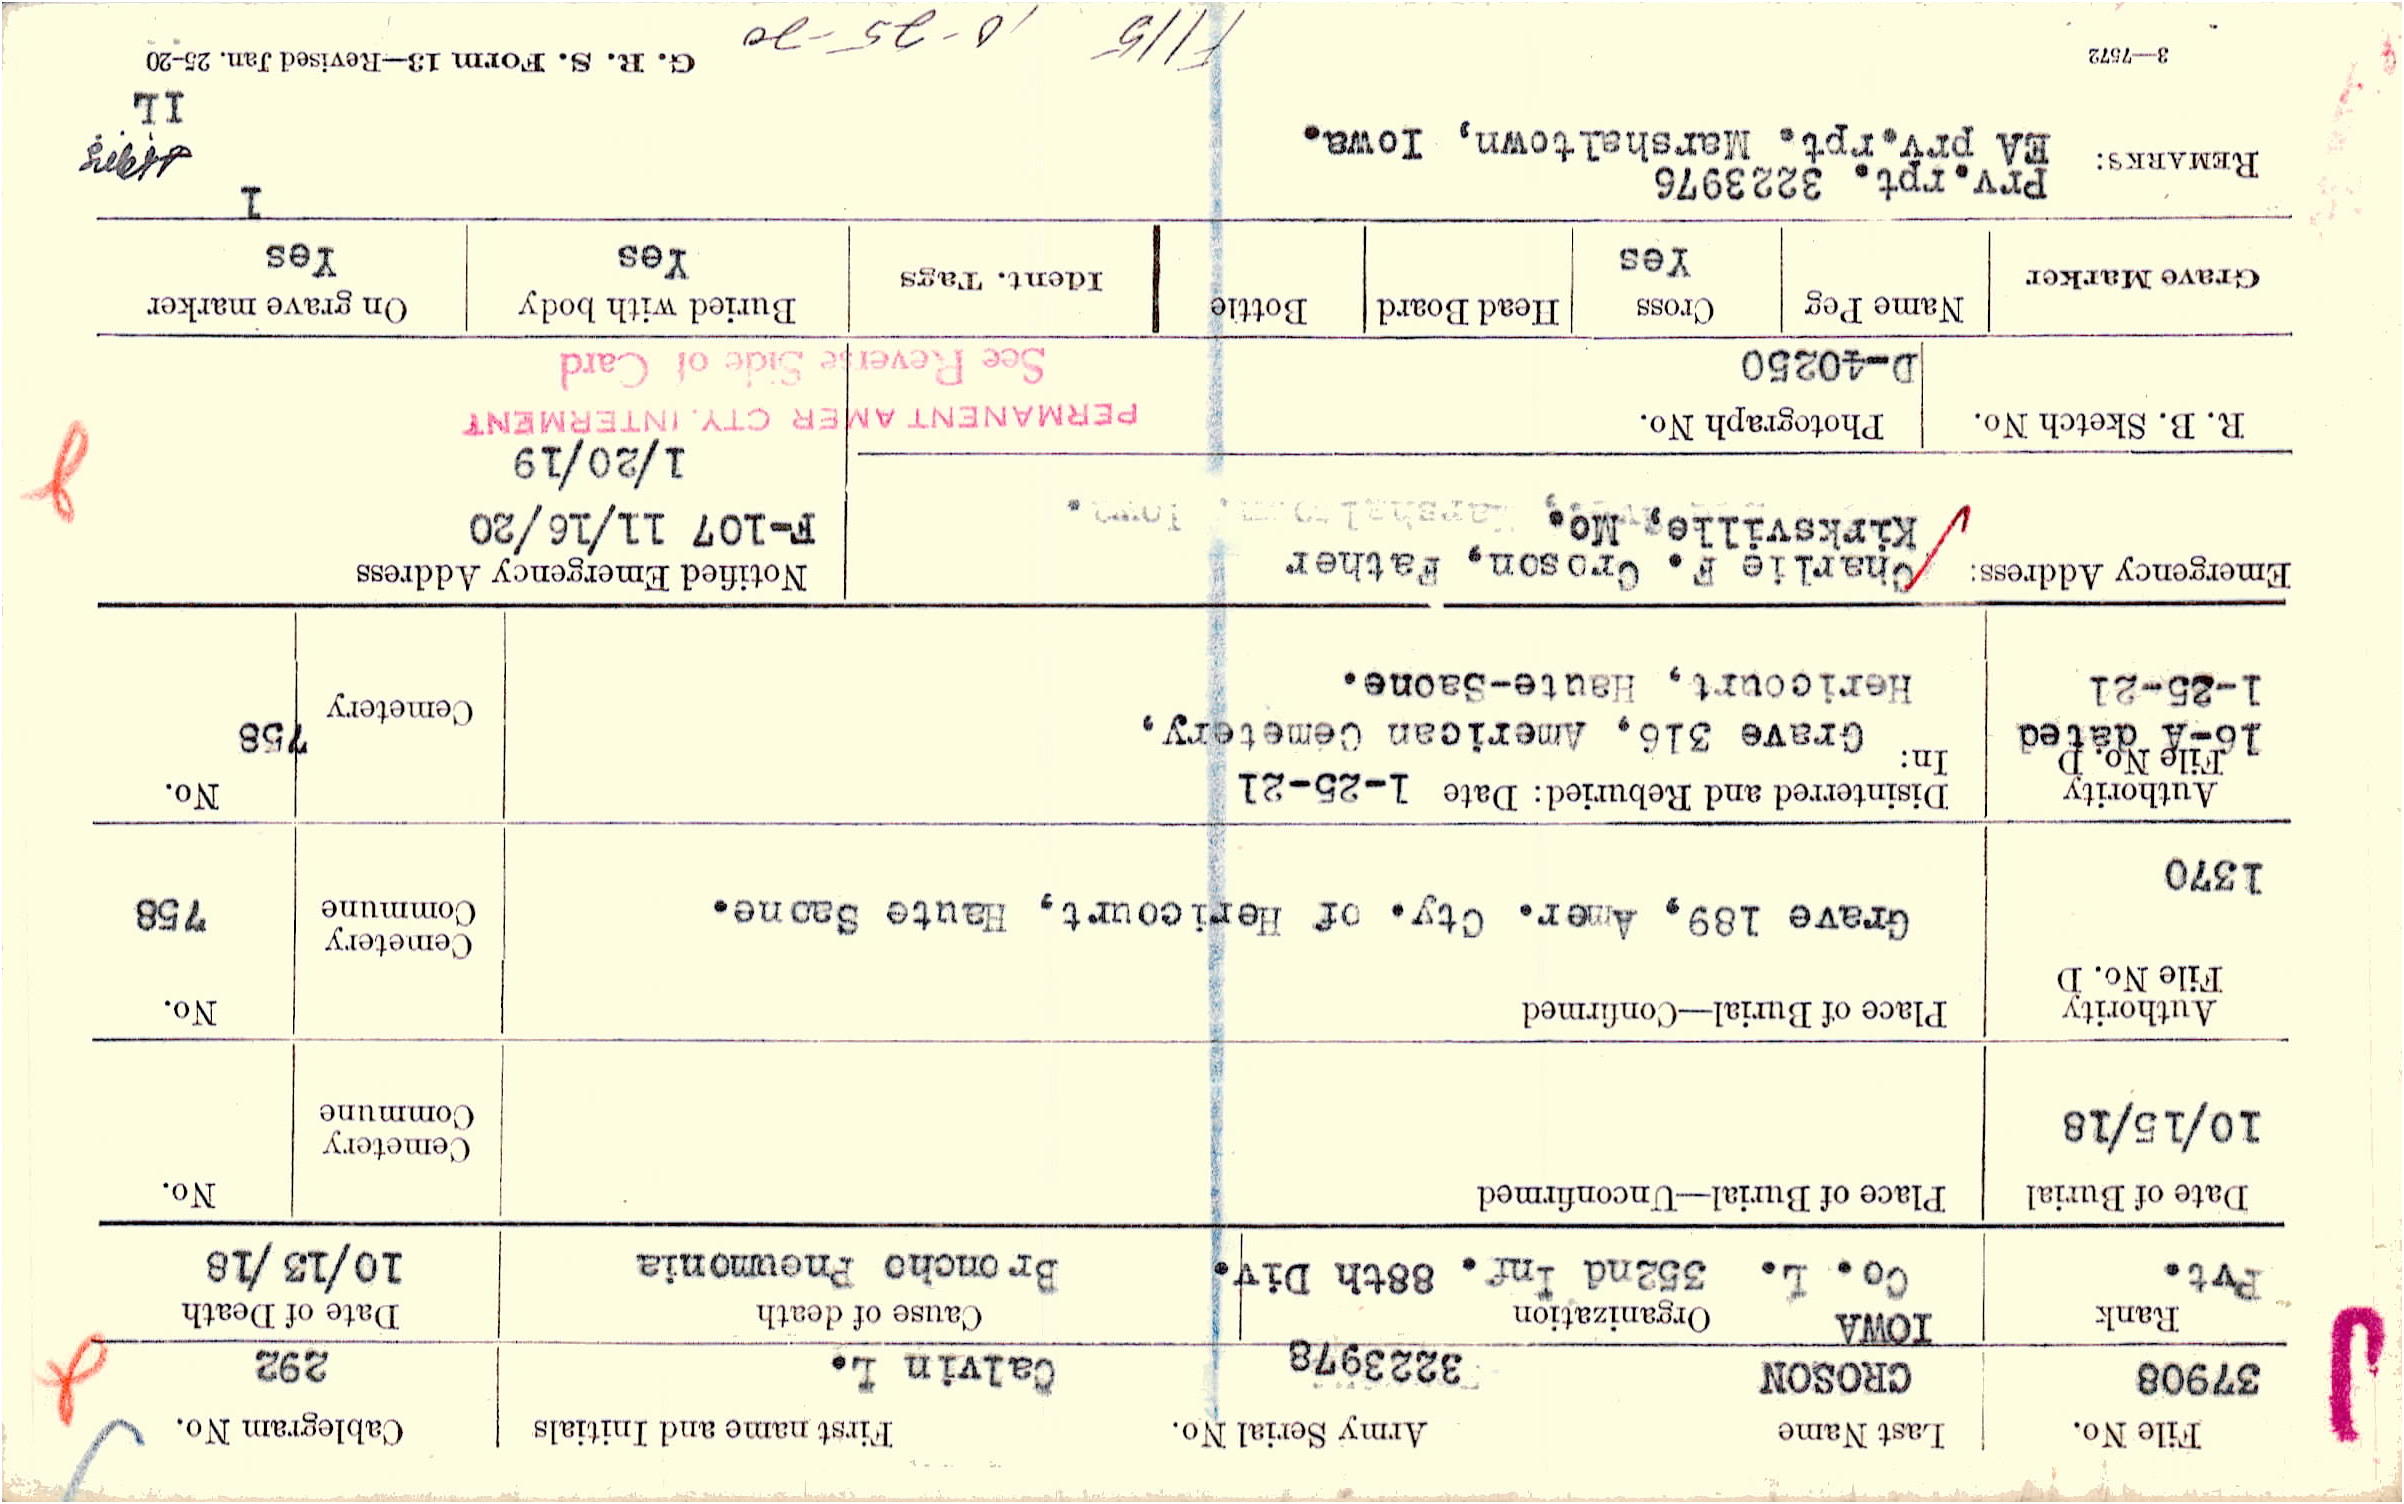 File No. Last Name Army Serial No. First name and Initials Cablegram No.
37908 CROSON 3223978 Calvin L. 292
Rank IOWA Organization Cause of death Date of Death
Pvt. Co. L. 352nd Inf. 88th Div. Broncho Pneumonia 10/13/18
Date of Burial Place of Burial—Unconfirmed No.
10/15/18 Cemetery
Commune
Authority Place of Burial—Confirmed No.
File No. D
Cemetery
Grave 189, Amer. Cty. of Hericourt, Haute Saone. Commune 758
1370
Authority Disinterred and Reburied: Date 1-25-21 No.
File No. D In:
16-A dated Grave 316, American Cemetery, 758
1-25-21 Hericourt, Haute-Saone. Cemetery
Emergency Address: Charlie F. Croson, Father Notified Emergency Address
Kirksville, Mo. F-107 11/16/20
1/20/19
R. B. Sketch No. Photograph No. PERMANENT AMER CTY. INTERMENT
D-40250 See Reverse Side of Card
Grave Marker Name Peg Cross Head Board Bottle Ident. Tags Buried with body On grave marker
Yes Yes Yes
1
REMARKS: Prv.rpt. 3223976
EA prv.rpt. Marshaltown, Iowa.
IL
3—7572 G. R. S. Form 13—Revised Jan. 25-20